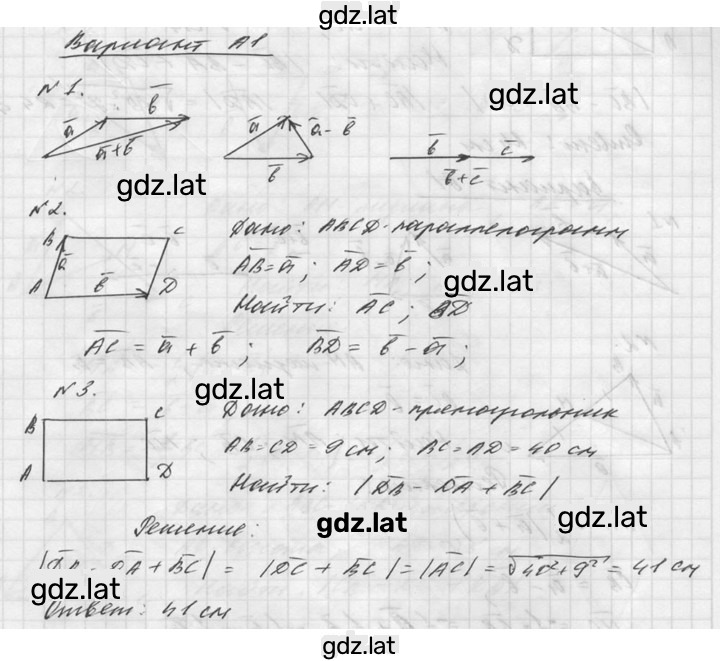 gdz.lat
Вариант А1
№1.
gdz.lat
a̅ b̅ a̅+b̅ a̅ a̅-b̅ b̅ b̅ c̅ b̅+c̅
gdz.lat
№2.
B C A D a̅ b̅
Дано: ABCD-параллелограмм
A̅B̅=a̅; A̅D̅=b̅;
gdz.lat
Найти: A̅C̅; B̅D̅
A̅C̅ = a̅ + b̅; B̅D̅ = b̅ - a̅;
№3.
gdz.lat
B C A D
Дано: ABCD-прямоугольник
AB=CD=9 см; BC=AD=40 см
Найти: |D̅B̅ - D̅A̅ + B̅C̅|
gdz.lat
gdz.lat
Решение:
|D̅B̅ - D̅A̅ + B̅C̅| = |D̅C̅ + B̅C̅| = |A̅C̅| = √40²+9² = 41 см
gdz.lat
Ответ: 41 см
gdz.lat